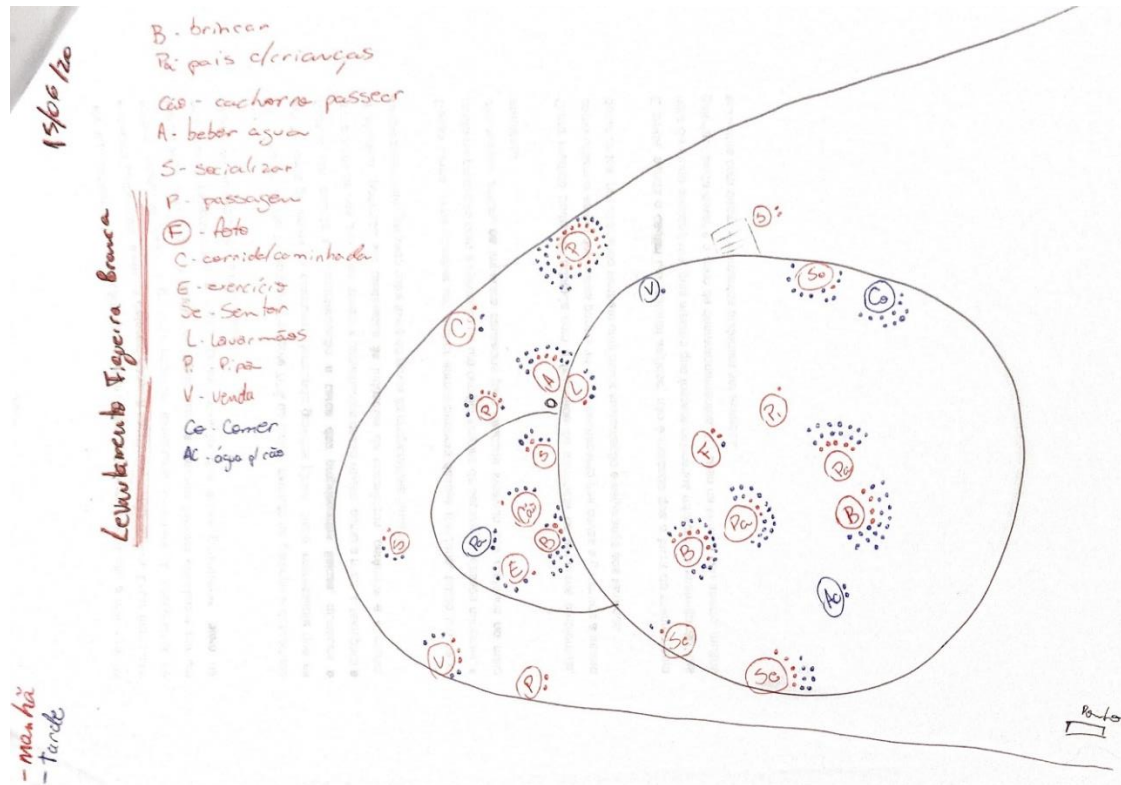 15/06/20
Levantamento Figueira Branca
B - brincar
Pa - pais c/crianças
Cão - cachorro passear
A - beber agua
S - socializar
P - passagem
F - foto
C - corrida/caminhada
E - exercício
Se - Sentar
L - lavar mãos
P. - Pipa
V - venda
Co - Comer
AC - água p/ cão
- manhã
- tarde
S
P
Se
Co
V
C
A
L
P
P.
F
Pa
S
Cão
Pa
B
S
Pa
B
B
E
Ac
Se
V
Se
P
Ponto